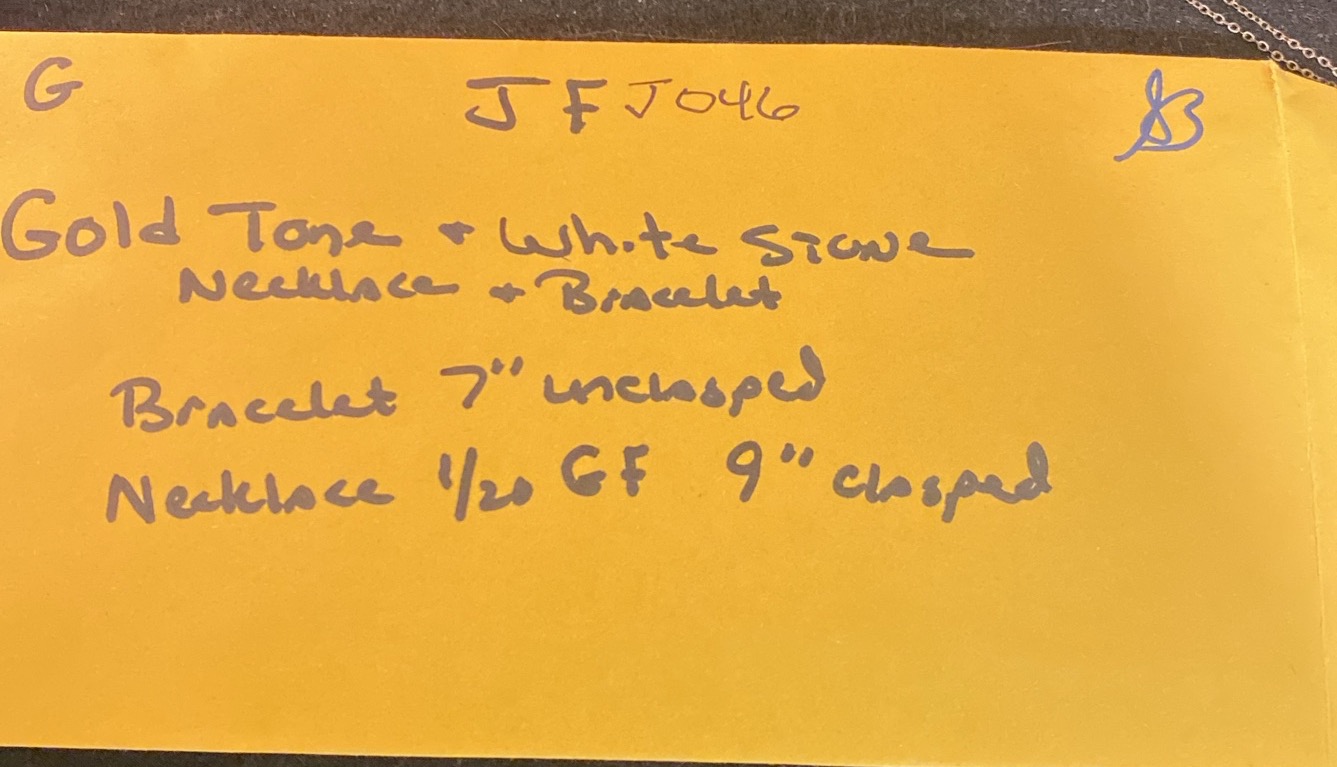 G JF J046 $3
Gold Tone + White Stone
Necklace + Bracelet
Bracelet 7" unclasped
Necklace 1/20 GF 9" clasped